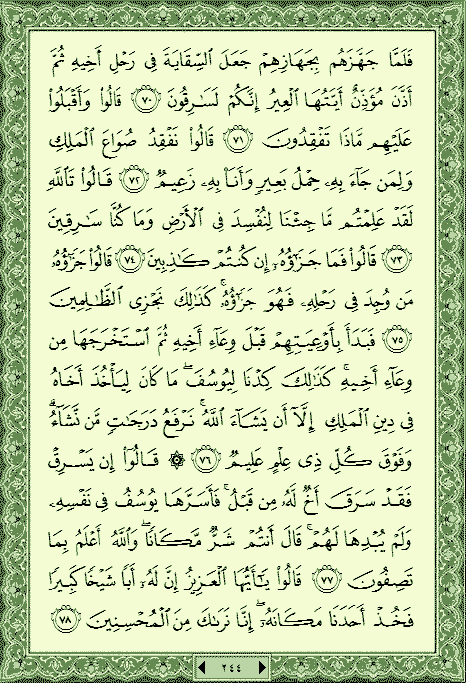 فَلَمَّا جَهَّزَهُم بِجَهَازِهِمۡ جَعَلَ ٱلسِّقَايَةَ فِي رَحۡلِ أَخِيهِ ثُمَّ
أَذَّنَ مُؤَذِّنٌ أَيَّتُهَا ٱلۡعِيرُ إِنَّكُمۡ لَسَٰرِقُونَ ٧٠ قَالُواْ وَأَقۡبَلُواْ
عَلَيۡهِم مَّاذَا تَفۡقِدُونَ ٧١ قَالُواْ نَفۡقِدُ صُوَاعَ ٱلۡمَلِكِ
وَلِمَن جَآءَ بِهِۦ حِمۡلُ بَعِيرٖ وَأَنَا۠ بِهِۦ زَعِيمٞ ٧٢ قَالُواْ تَٱللَّهِ
لَقَدۡ عَلِمۡتُم مَّا جِئۡنَا لِنُفۡسِدَ فِي ٱلۡأَرۡضِ وَمَا كُنَّا سَٰرِقِينَ
٧٣ قَالُواْ فَمَا جَزَٰٓؤُهُۥٓ إِن كُنتُمۡ كَٰذِبِينَ ٧٤ قَالُواْ جَزَٰٓؤُهُۥ
مَن وُجِدَ فِي رَحۡلِهِۦ فَهُوَ جَزَٰٓؤُهُۥۚ كَذَٰلِكَ نَجۡزِي ٱلظَّٰلِمِينَ
٧٥ فَبَدَأَ بِأَوۡعِيَتِهِمۡ قَبۡلَ وِعَآءِ أَخِيهِ ثُمَّ ٱسۡتَخۡرَجَهَا مِن
وِعَآءِ أَخِيهِۚ كَذَٰلِكَ كِدۡنَا لِيُوسُفَۖ مَا كَانَ لِيَأۡخُذَ أَخَاهُ
فِي دِينِ ٱلۡمَلِكِ إِلَّآ أَن يَشَآءَ ٱللَّهُۚ نَرۡفَعُ دَرَجَٰتٖ مَّن نَّشَآءُۗ
وَفَوۡقَ كُلِّ ذِي عِلۡمٍ عَلِيمٞ ٧٦ ۞ قَالُوٓاْ إِن يَسۡرِقۡ
فَقَدۡ سَرَقَ أَخٞ لَّهُۥ مِن قَبۡلُۚ فَأَسَرَّهَا يُوسُفُ فِي نَفۡسِهِۦ
وَلَمۡ يُبۡدِهَا لَهُمۡۚ قَالَ أَنتُمۡ شَرّٞ مَّكَانٗاۖ وَٱللَّهُ أَعۡلَمُ بِمَا
تَصِفُونَ ٧٧ قَالُواْ يَٰٓأَيُّهَا ٱلۡعَزِيزُ إِنَّ لَهُۥٓ أَبٗا شَيۡخٗا كَبِيرٗا
فَخُذۡ أَحَدَنَا مَكَانَهُۥٓۖ إِنَّا نَرَىٰكَ مِنَ ٱلۡمُحۡسِنِينَ ٧٨
٢٤٤